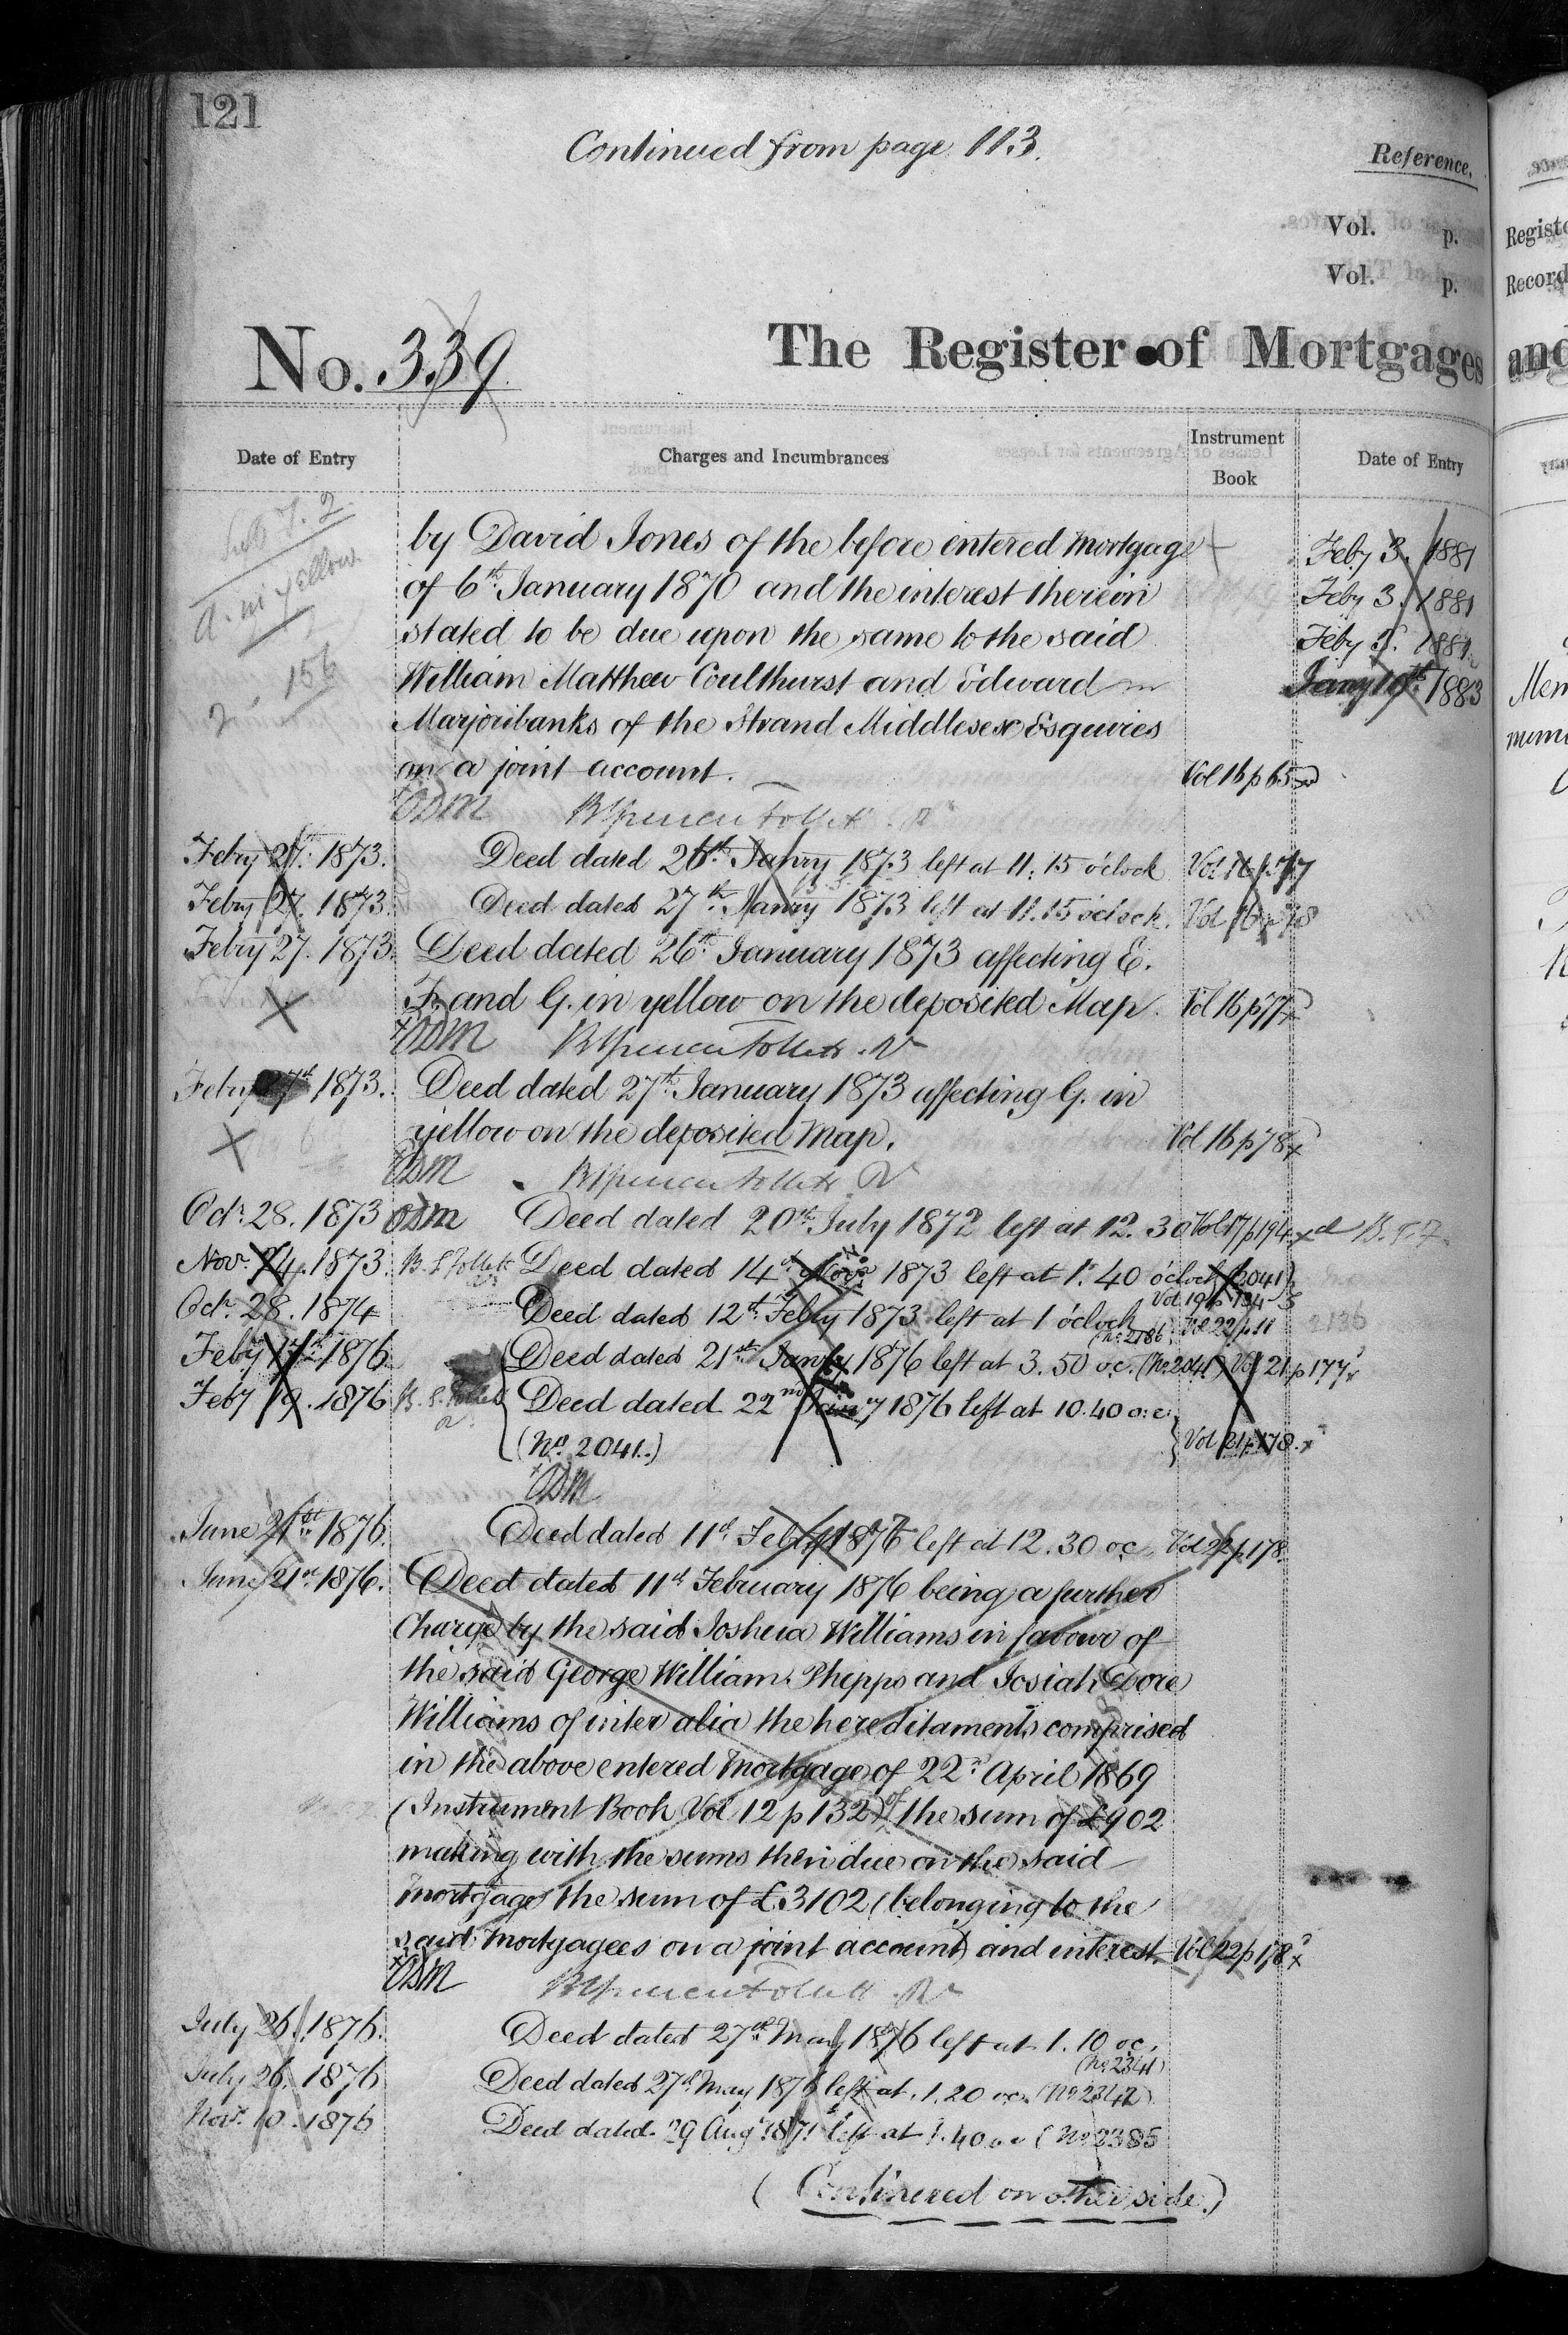 121
Continued from page 113.
Reference.
Vol. p.
Vol. p.
No. 339
The Register of Mortgages
Date of Entry
Charges and Incumbrances
Instrument
Book
Date of Entry
a. in yellow
2 . 156
by David Jones of the before entered Mortgage
Feby 3. 1881
of 6th January 1870 and the interest therein
Feby 3. 1881
stated to be due upon the same to the said
Feby 1881
William Matthew Coulthurst and Edward
Jany 19th 1883
Marjoribanks of the Strand Middlesex Esquires
on a joint account.
Vol 16 p 65
ODM
Febry 27th 1873. Deed dated 26th Janry 1873 left at 11.15 o'clock Vol 16 p 77
Febry 27. 1873. Deed dated 27th Janry 1873 left at 11.15 o'clock. Vol 16 p 78
Febry 27. 1873. Deed dated 26th January 1873 affecting E.
F. and G. in yellow on the deposited Map. Vol 16 p 77
ODM
Febry 27th 1873. Deed dated 27th January 1873 affecting G. in
yellow on the deposited Map. Vol 16 p 78
ODM
Octr. 28. 1873 ODM Deed dated 20th July 1872 left at 12.30 Vol 17 p 194
Novr. 24. 1873. Deed dated 14th Novr 1873 left at 1.40 o'clock (2041)
Vol 19 p 134
Octr. 28. 1874 Deed dated 12th Febry 1873 left at 1 o'clock Vol 22 p 11
2136
(No. 2186)
Feby 1876 Deed dated 21st Janry 1876 left at 3.50 o.c. (No. 2041) Vol 21 p 177
Feby 19. 1876 Deed dated 22nd Jany 1876 left at 10.40 o.c.
(No. 2041.) Vol 21 p 178
ODM
June 21st 1876. Deed dated 11th Febry 1876 left at 12.30 oc. Vol 22 p 178
June 21st 1876. Deed dated 11th February 1876 being a further
Charge by the said Joshua Williams in favour of
the said George William Phepps and Josiah Dore
Williams of inter alia the hereditaments comprised
in the above entered Mortgage of 22nd April 1869
(Instrument Book Vol 12 p 132) of the sum of £902
making with the sums then due on the said
Mortgage the sum of £3102 (belonging to the
said Mortgagees on a joint account) and interest. Vol 22 p 178
ODM
July 26. 1876. Deed dated 27th May 1876 left at 1.10 oc.
(No. 2341)
July 26. 1876 Deed dated 27th May 1876 left at 1.20 oc. (No 2342)
Novr. 10. 1876 Deed dated 29 Augt 1871 left at 1.40 oc (No 2385
(Continued on other side.)